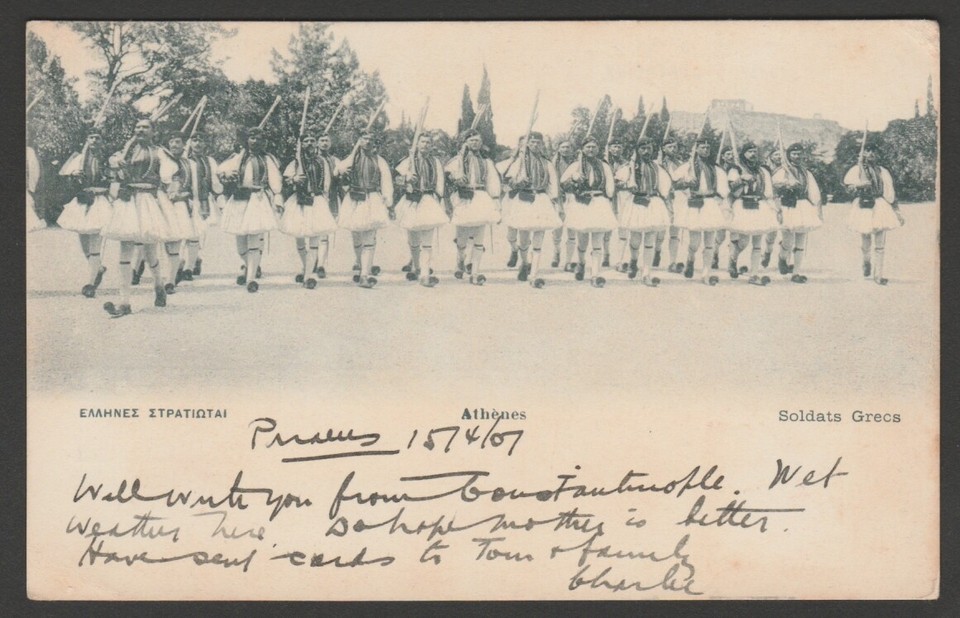 ΕΛΛΗΝΕΣ ΣΤΡΑΤΙΩΤΑΙ Athènes Soldats Grecs
Piraeus 15/4/07
Will write you from Constantinople. Wet
weather here. Do hope mother is better.
Have sent cards to Tom & family
Charlie